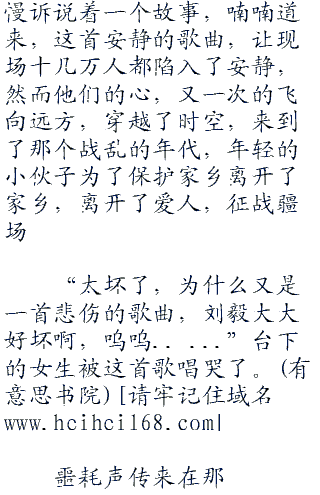 漫诉说着一个故事，喃喃道
来，这首安静的歌曲，让现
场十几万人都陷入了安静，
然而他们的心，又一次的飞
向远方，穿越了时空，来到
了那个战乱的年代，年轻的
小伙子为了保护家乡离开了
家乡，离开了爱人，征战疆
场
“太坏了，为什么又是
一首悲伤的歌曲，刘毅大大
好坏啊，呜呜......”台下
的女生被这首歌唱哭了。(有
意思书院)[请牢记住域名
www.hcihci168.com|
噩耗声传来在那